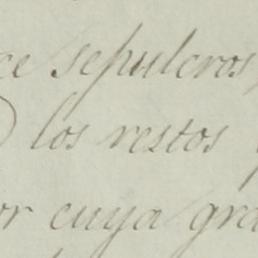 ce sepulcros,
los restos
or cuya gra